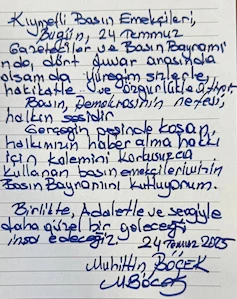 Kıymetli Basın Emekçileri,
Bugün, 24 Temmuz
Gazeteciler ve Basın Bayramı
nda, dört duvar arasında
olsamda yüreğim sizlerle,
hakikatle ve özgürlükle
Basın, Demokrasinin nefesi,
halkın sesidir
Gerçeğin peşinde koşan,
halkımızın haber alma hakkı
için kalemini korkusuzca
kullanan basın emekçilerimizin
Basın Bayramını kutluyorum.
Birlikte, Adaletle ve sevgiyle
daha güzel bir geleceği
inşa edeceğiz.
24 Temmuz 2025
Muhittin BÖCEK
M.Böcek